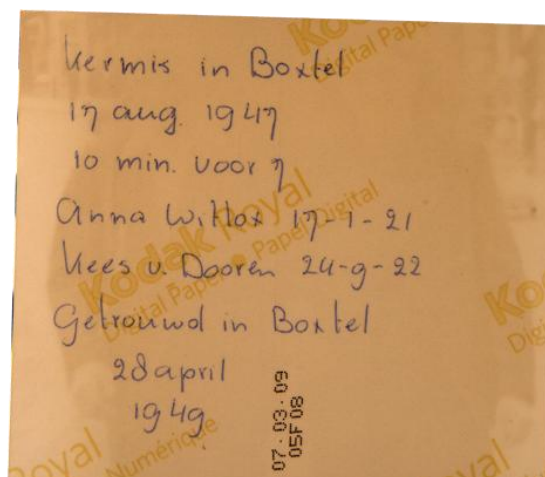 Kermis in Boxtel
17 aug. 1947
10 min. voor 7
Anna Witlox 17-1-21
Kees v. Dooren 24-9-22
Getrouwd in Boxtel
28 april
1949
07·03·09
05F08
Kodak Royal
Digital Paper • Papel Digital
Kodak
Digital Pape
Ko
Digi
Royal
Numérique